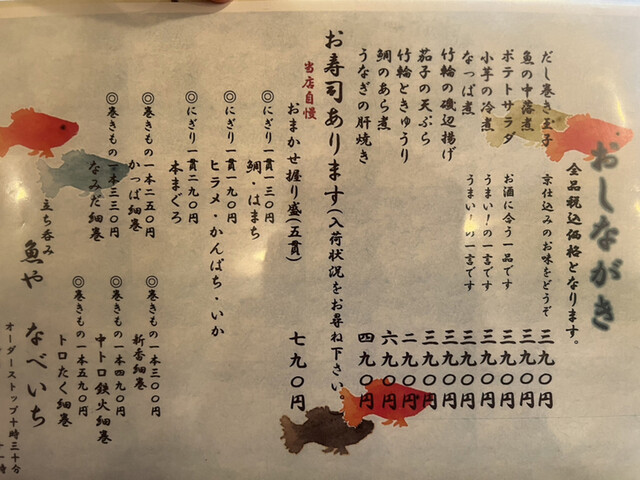 おしながき
全品税込価格となります。
だし巻き玉子 京仕込みのお味をどうぞ 三九〇円
魚の中落煮 三九〇円
ポテトサラダ お酒に合う一品です 三九〇円
小芋の冷煮 うまい！の一言です 三九〇円
なっぱ煮 うまい！の一言です 三九〇円
竹輪の磯辺揚げ 三九〇円
茄子の天ぷら 三九〇円
竹輪ときゅうり 二九〇円
鯛のあら煮 六九〇円
うなぎの肝焼き 四九〇円
お寿司あります(入荷状況をお尋ね下さい。
当店自慢
おまかせ握り盛(五貫) 七九〇円
◎にぎり一貫一三〇円
鯛・はまち
◎にぎり一貫一九〇円
ヒラメ・かんぱち・いか
◎にぎり一貫二九〇円
本まぐろ
◎巻きもの一本二五〇円
かっぱ細巻
◎巻きもの一本三三〇円
なみだ細巻
◎巻きもの一本三〇〇円
新香細巻
◎巻きもの一本四九〇円
中トロ鉄火細巻
◎巻きもの一本五九〇円
トロたく細巻
立ち呑み
魚や なべいち
オーダーストップ十時三十分